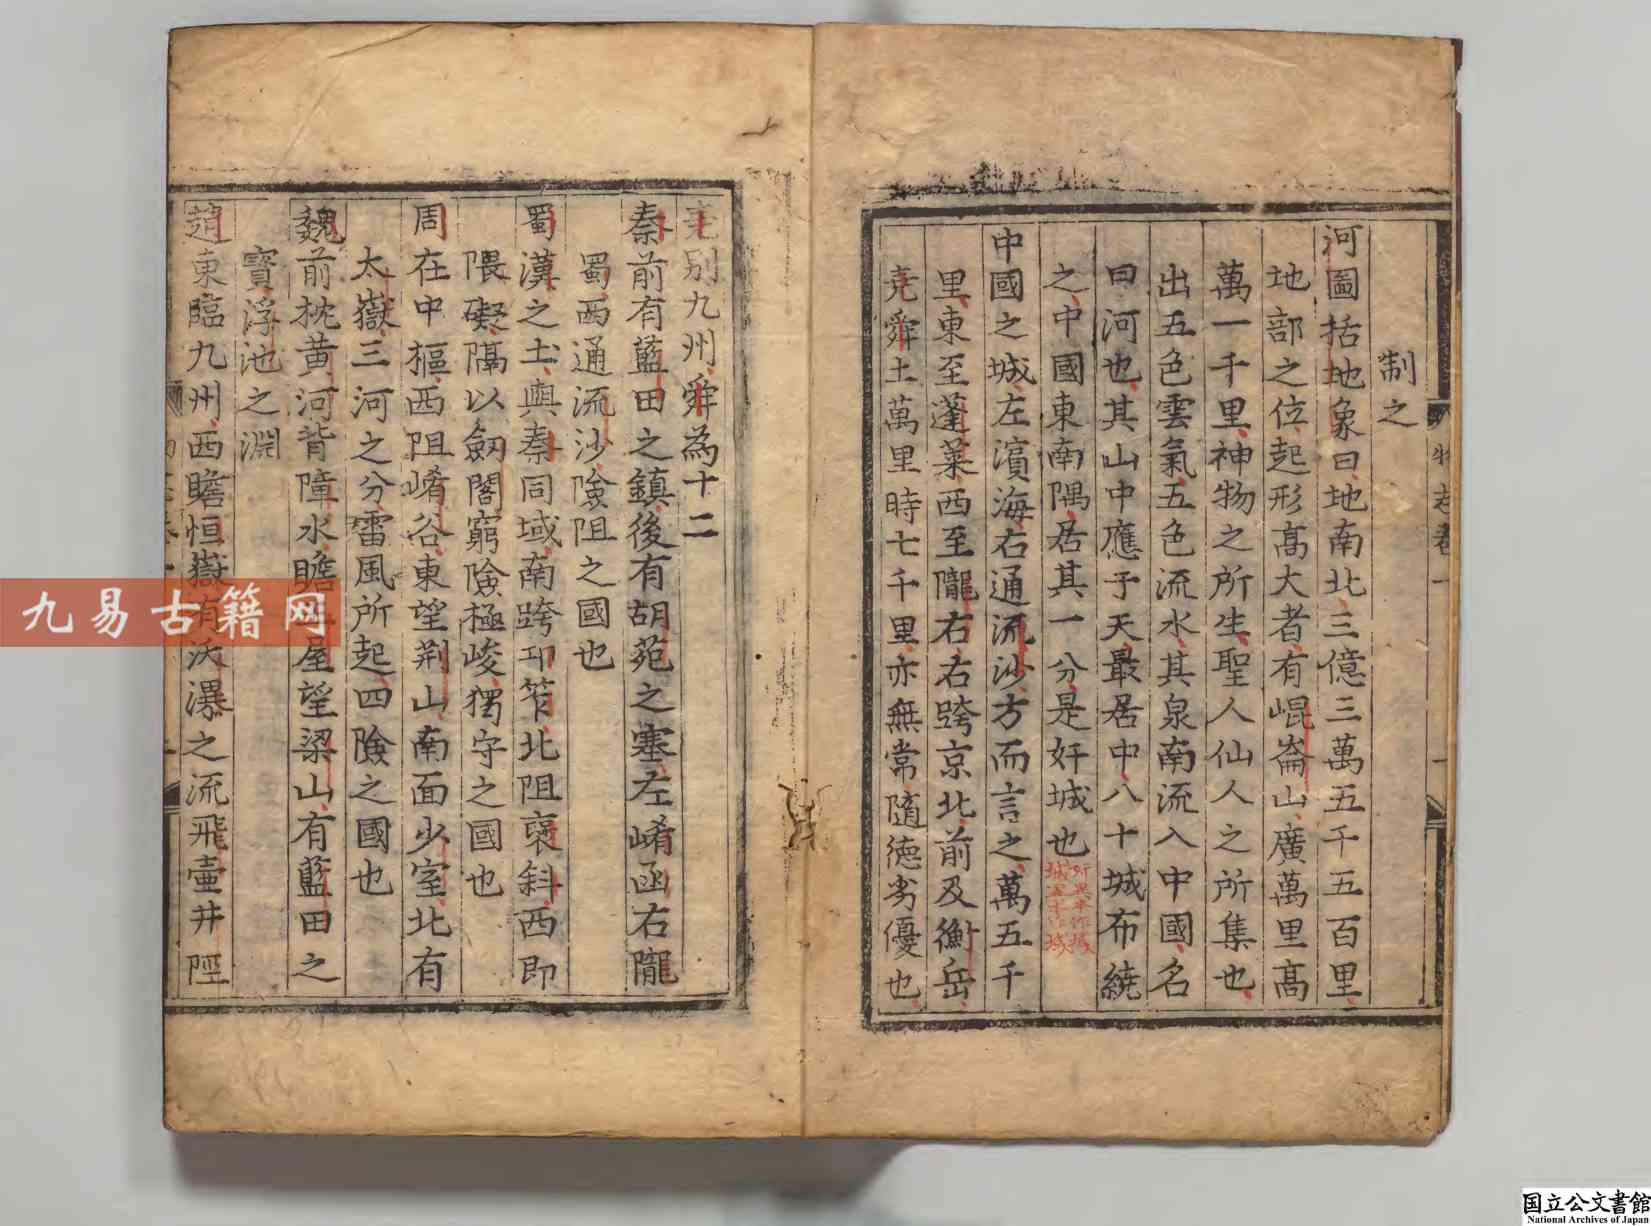 制之
河圖括地象曰地南北三億三萬五千五百里
地部之位起形髙大者有崐崙山廣萬里髙
萬一千里神物之所生聖人仙人之所集也
出五色雲氣五色流水其泉南流入中國名
曰河也其山中應于天最居中八十城布繞
之中國東南隅居其一分是奸城也
中國之城左濱海右通流沙方而言之萬五千
里東至蓬萊西至隴右右跨京北前及衡岳
堯舜土萬里時七千里亦無常隨德劣優也
物志卷一
堯别九州舜為十二
秦前有藍田之鎮後有胡苑之塞左崤函右隴
蜀西通流沙險阻之國也
蜀漢之土與秦同域南跨邛笮北阻褒斜西即
隈礙隔以劒閣窮險極峻獨守之國也
周在中樞西阻崤谷東望荆山南面少室北有
太嶽三河之分雷風所起四險之國也
魏前枕黄河背障水瞻屋望梁山有藍田之
寶浮池之淵
趙東臨九州西瞻恒嶽有沃瀑之流飛壷井陘
九易古籍网
国立公文書館
National Archives of Japan